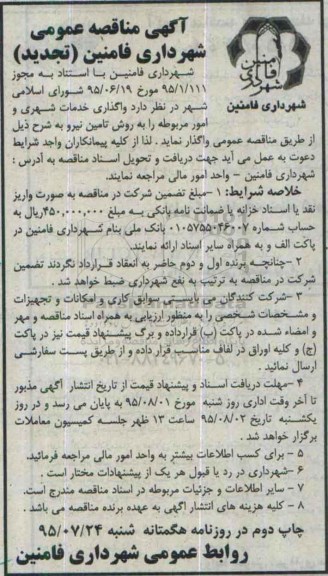 آگهی مناقصه عمومی
شهرداری فامنین (تجدید)
شهرداری فامنین
شهرداری فامنین با استناد به مجوز
۹۵/۱/۱۱۱ مورخ ۹۵/۰۶/۱۹ شورای اسلامی
شهر در نظر دارد واگذاری خدمات شهری و
امور مربوطه را به روش تامین نیرو به شرح ذیل
از طریق مناقصه عمومی واگذار نماید . لذا از کلیه پیمانکاران واجد شرایط
دعوت به عمل می آید جهت دریافت و تحویل اسناد مناقصه به آدرس :
شهرداری فامنین – واحد امور مالی مراجعه نمایند.
خلاصه شرایط: ۱ –مبلغ تضمین شرکت در مناقصه به صورت واریز
نقد یا اسناد خزانه یا ضمانت نامه بانکی به مبلغ ۴۵۰,۰۰۰,۰۰۰ریال به
حساب شماره ۰۱۰۵۷۵۵۰۴۶۰۰۷ بانک ملی بنام شهرداری فامنین در
پاکت الف و به همراه سایر اسناد ارائه نمایند.
۲ –چنانچه برنده اول و دوم حاضر به انعقاد قرارداد نگردند تضمین
شرکت در مناقصه به ترتیب به نفع شهرداری ضبط خواهد شد .
۳ –شرکت کنندگان می بایستی سوابق کاری و امکانات و تجهیزات
و مشخصات شخصی را به منظور ارزیابی به همراه اسناد مناقصه و مهر
و امضاء شده در پاکت (ب) قرارداده و برگ پیشنهاد قیمت نیز در پاکت
(ج) و کلیه اوراق در لفاف مناسب قرار داده و از طریق پست سفارشی
ارسال نمائید .
۴ –مهلت دریافت اسناد و پیشنهاد قیمت از تاریخ انتشار آگهی مذبور
تا آخر وقت اداری روز شنبه مورخ ۹۵/۰۸/۰۱ به پایان می رسد و در روز
یکشنبه تاریخ ۹۵/۰۸/۰۲ ساعت ۱۳ ظهر جلسه کمیسیون معاملات
برگزار خواهد شد .
۵ – برای کسب اطلاعات بیشتر به واحد امور مالی مراجعه فرمائید.
۶ –شهرداری در رد یا قبول هر یک از پیشنهادات مختار است .
۷ – سایر اطلاعات و جزئیات مربوطه در اسناد مناقصه مندرج است.
۸ – کلیه هزینه های انتشار آگهی به عهده برنده مناقصه می باشد .
چاپ دوم در روزنامه هگمتانه شنبه ۹۵/۰۷/۲۴
روابط عمومی شهرداری فامنین